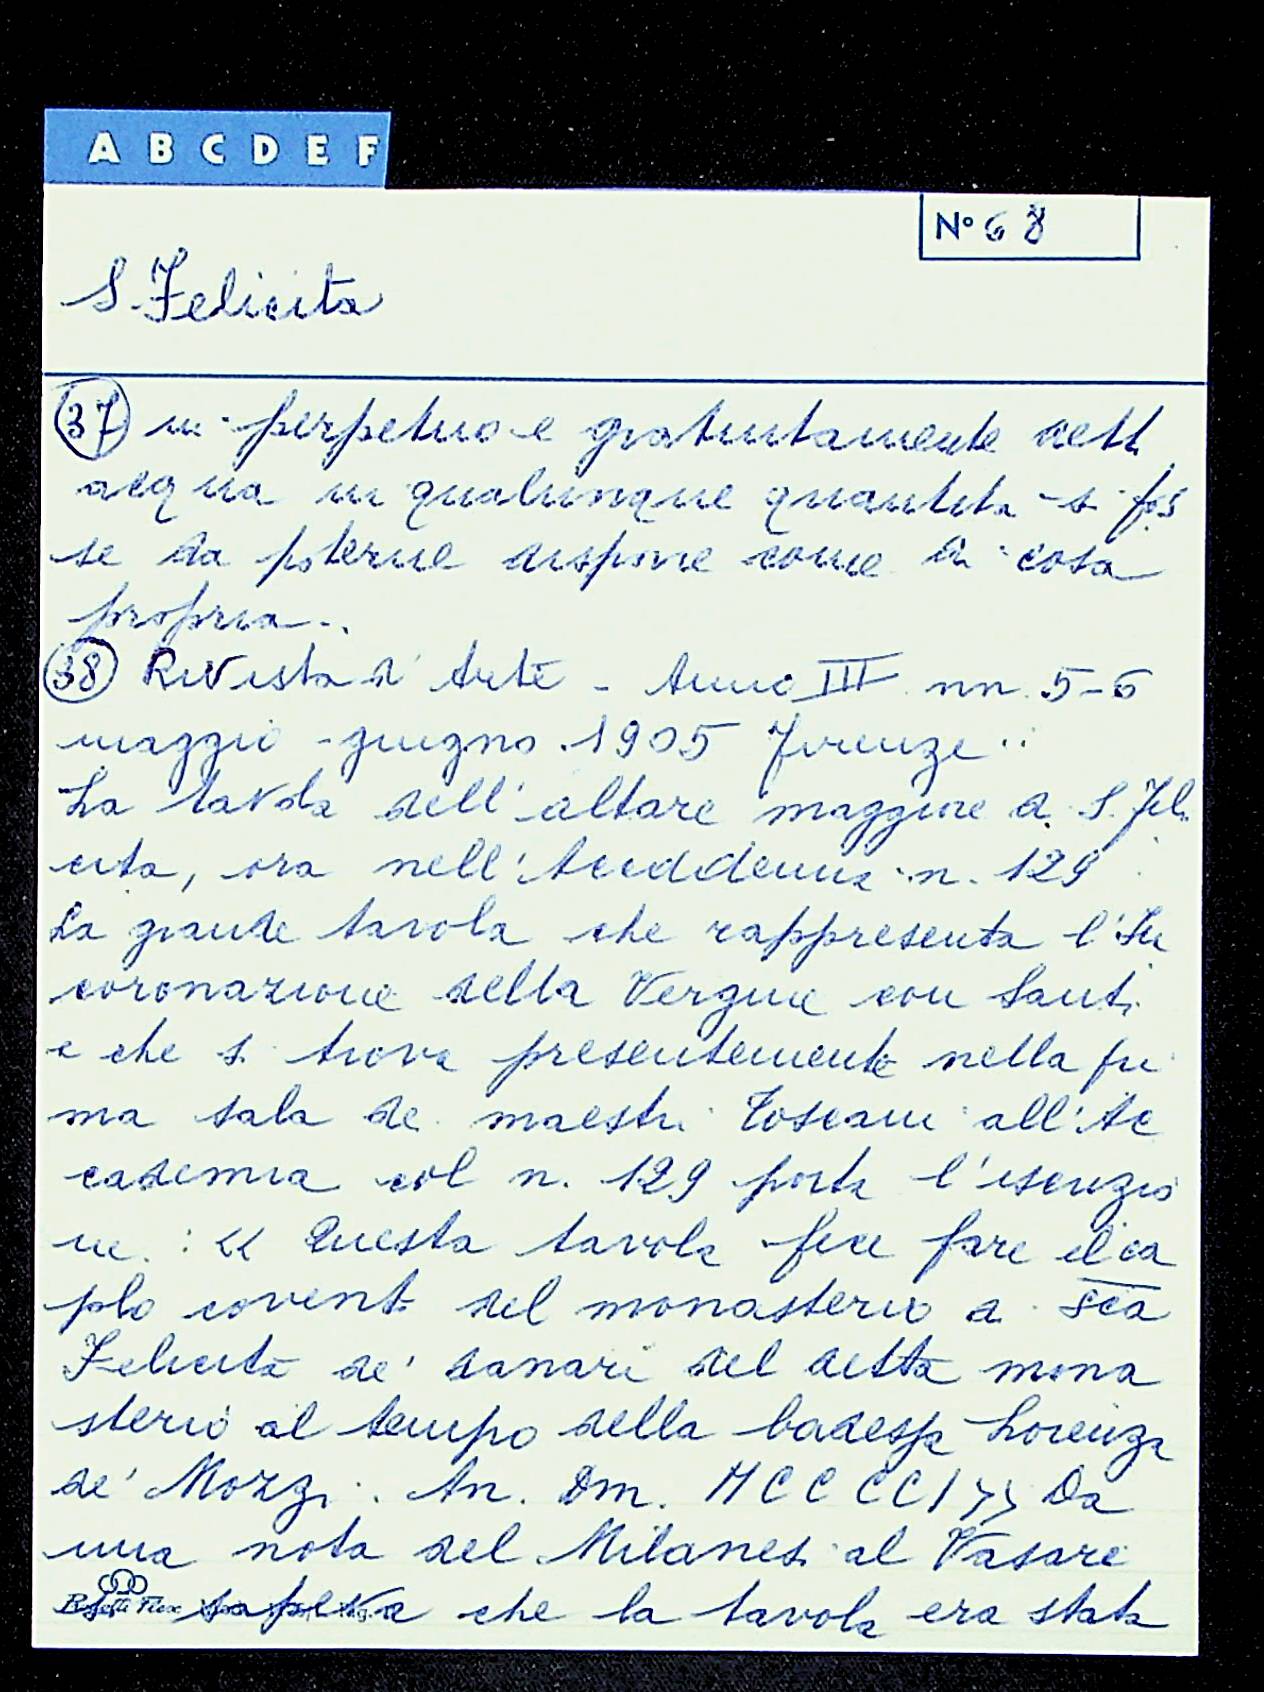 A B C D E F
N° 68
S. Felicita
37 in perpetuo e gratuitamente dell
acqua in qualunque quantita si fos
se da poterne disporre come di cosa
propria..
38 Rivista d'Arte - Anno III nn. 5-6
maggio - giugno 1905 Firenze ..
La tavola dell'altare maggiore di S. Feli
cita, ora nell'Accddemia n. 129
La grande tavola che rappresenta l'In
coronazione della Vergine con Santi
e che si trova presentemente nella pri
ma sala dei maestri Toscani all'Ac
cademia col n. 129 porta l'iscrizio
ne : << Questa tavola fece fare el ca
plo covent del monasterio di Sca
Felicita de' danari del detto mona
sterio al tempo della badessa Lorenza
de' Mozzi. An. Dm. MCCCCCI >> Da
una nota del Milanesi al Vasari
si sapeva che la tavola era stata